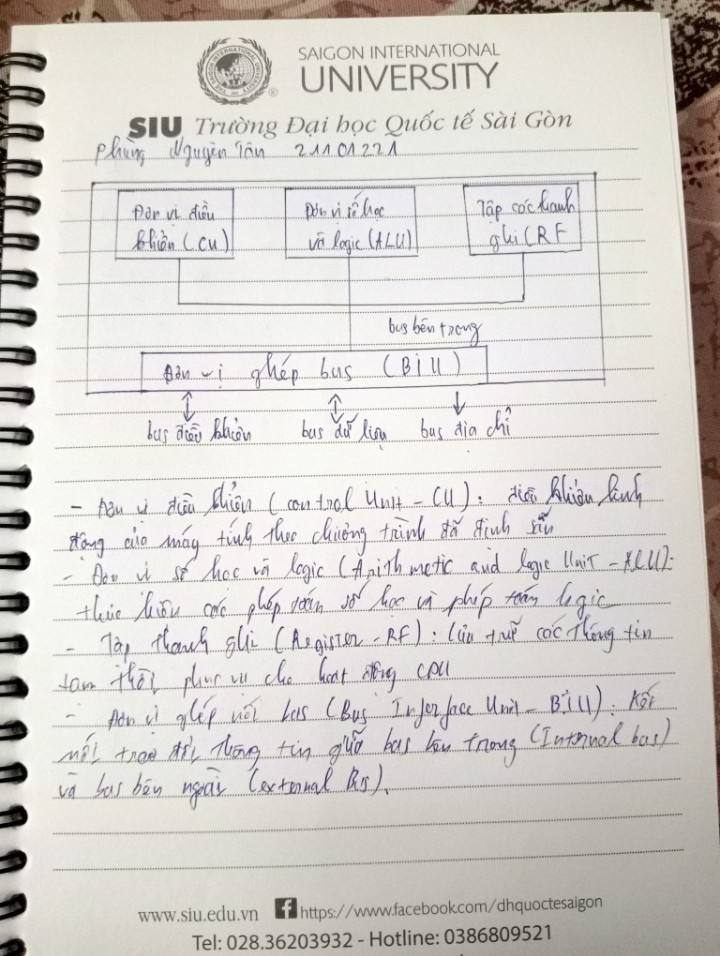 SAIGON INTERNATIONAL
UNIVERSITY
SIU Trường Đại học Quốc tế Sài Gòn
Phùng Nguyên Tân 21101221
Đơn vị điều
khiển (CU)
Đơn vị số học
và logic (ALU)
Tập các thanh
ghi (RF
bus bên trong
Đơn vị ghép bus (BiU)
bus điều khiển
bus dữ liệu
bus địa chỉ
- Đơn vị điều khiển (control Unit - CU): điều khiển
động của máy tính theo chương trình đã định sẵn
- Đơn vị số học và logic (Arithmetic and logic Unit - ALU):
thực hiện các phép toán số học và phép toán logic
- Tập thanh ghi (Register - RF): lưu trữ các thông tin
tạm thời phục vụ cho hoạt động CPU
- Đơn vị ghép nối bus (Bus Interface Unit - BiU): Kết
nối trao đổi thông tin giữa bus bên trong (Internal bus)
và bus bên ngoài (external
www.siu.edu.vn https://www.facebook.com/dhquoctesaigon
Tel: 028.36203932 - Hotline: 0386809521